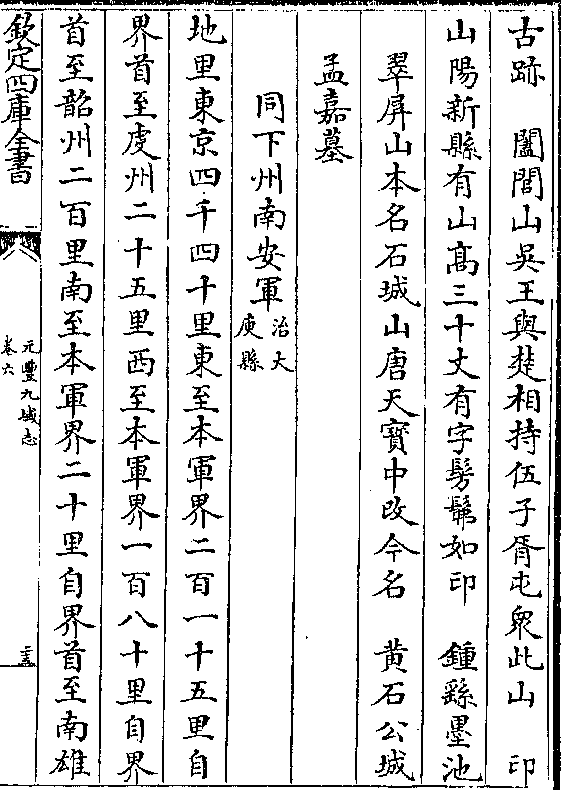 古跡　闔閭山吳王與楚相持伍子胥屯衆此山　印
山陽新縣有山髙三十丈有字髣髴如印　鍾繇墨池
翠屏山本名石城山唐天寳中改今名　黄石公城
孟嘉墓
同下州南安軍治大庾縣
地里東京四千四十里東至本軍界二百一十五里自
界首至䖍州二十五里西至本軍界一百八十里自界
首至韶州二百里南至本軍界二十里自界首至南雄
欽定四庫全書
元豐九域志
卷六
二十五